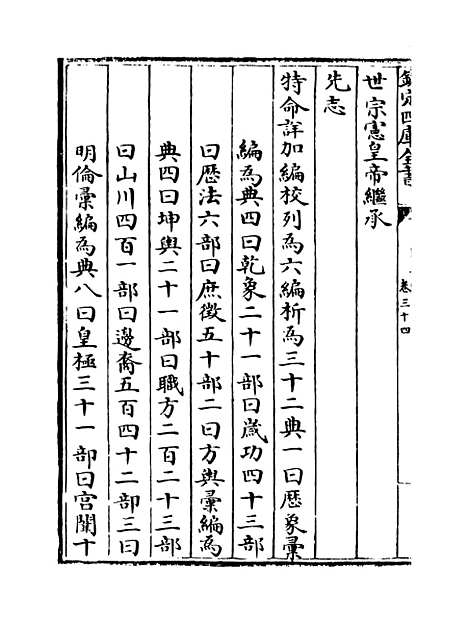 欽定四庫全書
卷三十四
世宗憲皇帝繼承
先志
特命詳加編校列為六編析為三十二典一曰厯象彚
編為典四曰乾象二十一部曰歲功四十三部
曰厯法六部曰庶徵五十部二曰方輿彚編為
典四曰坤輿二十一部曰職方二百二十三部
曰山川四百一部曰邊裔五百四十二部三曰
明倫彚編為典八曰皇極三十一部曰宫闈十